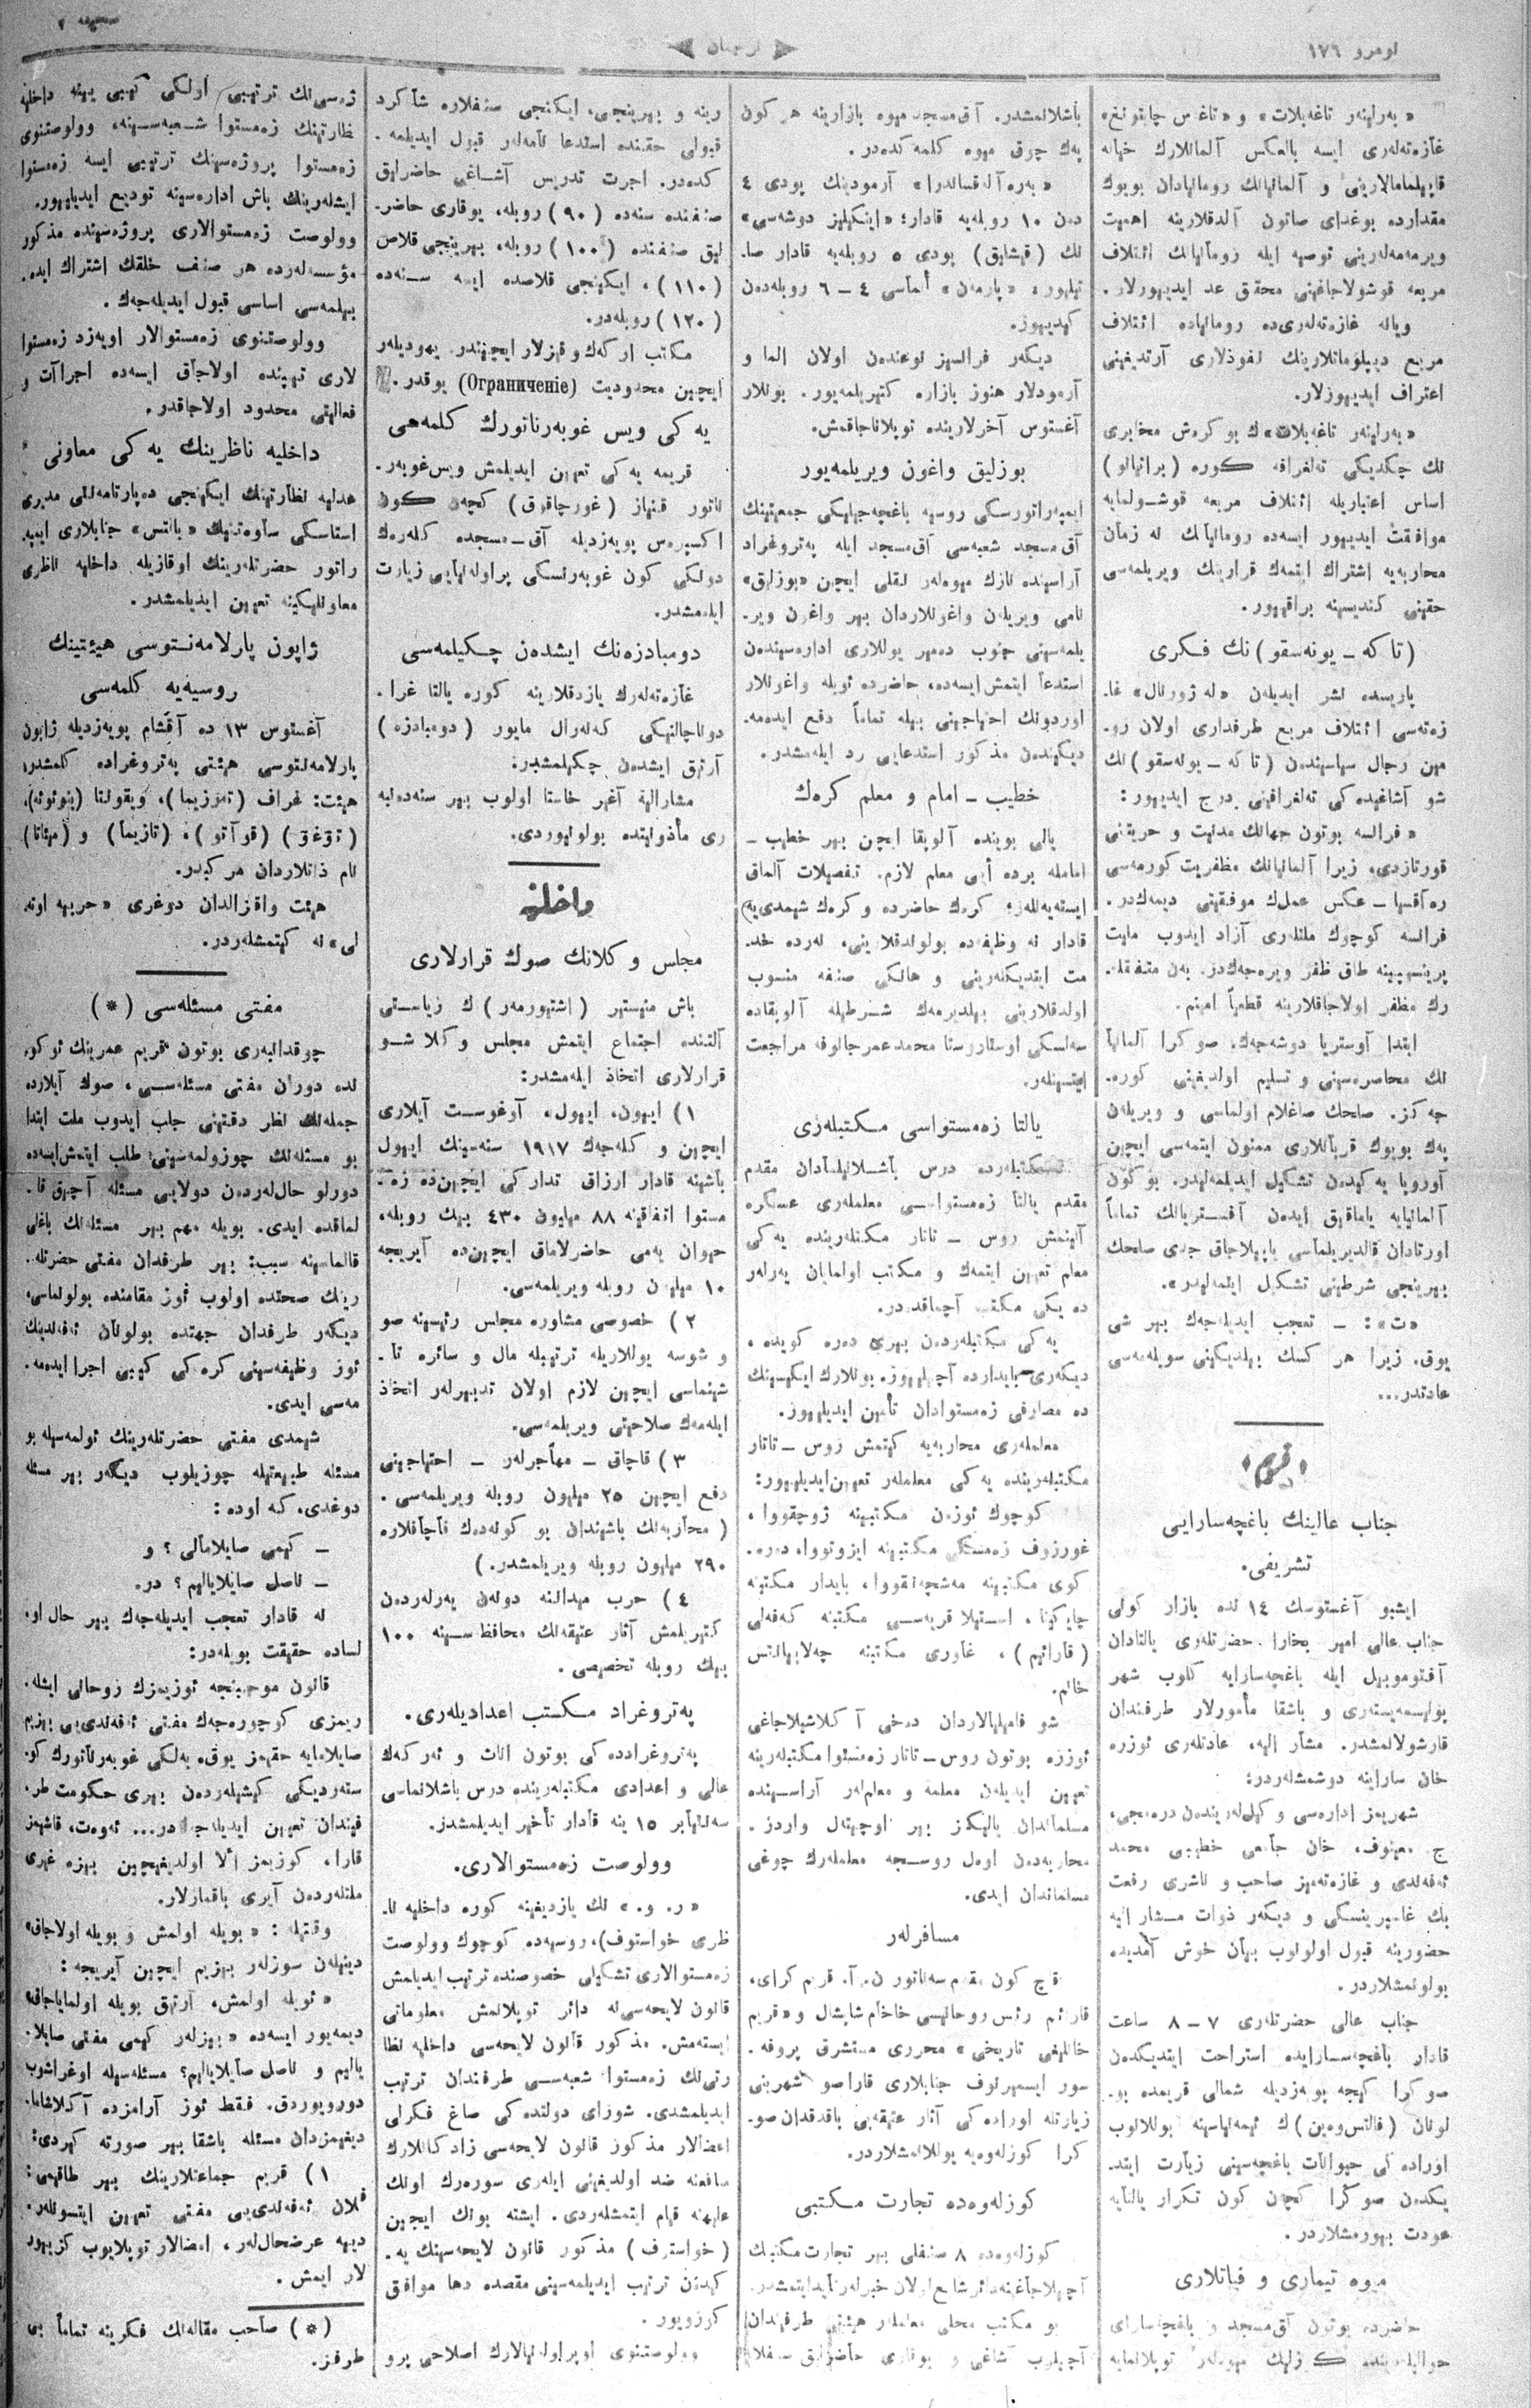 نومرو ١٧٦
ترجمان
صحیفه ٢
«بەرلینەر تاغەبلات» و «تاغس چایتونغ»
غازەتەلەری ایسه بالعکس آلمانلارك خیانه
قاپیلمامالارینی و آلمانیانك رومانیادان بویوك
مقدارده بوغدای صاتون آلدقلارینه اهمیت
ویرمەمەلەرینی توصیه ایله رومانیانك ائتلاف
مربعه قوشولاجاغینی محقق عد ایدییورلار.
ویانه غازەتەلەری ده رومانیاده ائتلاف
مربع دیپلوماتلارینك نفوذلاری آرتدیغینی
اعتراف ایدییورلار.
«بەرلینەر تاغەبلات»ك بوکرەش مخابری
نك چکدیکی تەلغرافه کوره (براتیانو)
اساس اعتباریله ائتلاف مربعه قوشولمایه
موافقت ایدییور ایسەده رومانیانك نه زمان
محاربه‌یه اشتراك ایتمك قرارینك ویریلمەسی
حقینی کندیسینه براقییور.
(تاکه ـ یونەسقو) نك فکری
پاریسده نشر ایدیلەن «لەژورنال» غا-
زەتەسی ائتلاف مربع طرفداری اولان رو-
مین رجال سیاسیندن (تاکه ـ یونەسقو) نك
شو آشاغیده‌کی تەلغرافینی درج ایدییور:
«فرانسه بوتون جهانك مدنیت و حریتنی
قورتاردی، زیرا آلمانیانك مظفریت کورمەسی
رەآقسیا ـ عکس عملك موفقیتی دیمەکدر.
فرانسه کوچوك ملتلەری آزاد ایدوب ملیت
پرینسیپینه طاق ظفر ویرەجەکدر. بەن متفقلە-
رك مظفر اولاجاقلارینه قطعیاً امینم.
ابتدا آوستریا دوشەجەك، صوکرا آلمانیا
نك محاصرەسینی و تسلیم اولدیغینی کورە-
جەکز. صلحك صاغلام اولماسی و ویریلەن
پەك بویوك قربانلاری ممنون ایتمەسی ایچین
آوروپا یەکیدن تشکیل ایدیلمەلیدر. بوکون
آلمانیایه یاماقلیق ایدەن آفستریانك تماماً
اورتادان قالدیریلماسی یاپیلاجاق جدی صلحك
بیرینجی شرطینی تشکیل ایتمەلیدر».
«ت»: ـ تعجب ایدیلەجەك بیر شی
یوق. زیرا هر کسك بیلدیکینی سویلەمەسی
عادتدر...
قریم
جناب عالینك باغچەسارایی
تشریفی.
ایشبو آغستوسك ١٤ نده بازار کونی
جناب عالی امیر بخارا حضرتلەری یالتادان
آفتوموبیل ایله باغچەسارایه کلوب شهر
پولیسمەیستەری و باشقا مأمورلار طرفندان
قارشولانمشدر. مشار الیه، عادتلەری اوزره
خان سارایینه دوشمشلەردر:
شهریمز ادارەسی و کیل‌لەریندەن درەنجی،
ج. معینوف، خان جامعی خطیبی محمد
ئەفەندی و غازەتەمیز صاحب و ناشری رفعت
بك غاسپرینسکی و دیکەر ذوات مشار الیه
حضورینه قبول اولونوب بیان خوش آمدیده
بولونمشلاردر.
جناب عالی حضرتلەری ٧ – ٨ ساعت
قادار باغچەسارایده استراحت ایتدیکدەن
صوکرا کیجه پویەزدیله شمالی قریمده بو-
لونان (فالتس‌وەین)ك ئیمەنیاسینه یوللانوب
اوراده‌کی حیوانات باغچەسینی زیارت ایتد-
یکدەن صوکرا کچەن کون تکرار یالتایه
عودت بیورمشلاردر.
میوه تیماری و فیاتلاری
حاضرده بوتون آق‌مسجد و باغچەسارای
باشلانمشدر. آق‌مسجد میوه بازارینه هر کون
پەك چوق میوه کلمەکدەدر.
«بەرەآلەقساندرا» آرمودینك پودی ٤
دەن ١٠ روبلەیه قادار؛ «اینکیلیز دوشەسی»
نك (قیشلیق) پودی ٥ روبلەیه قادار صا-
تیلیور؛ «پارمەن» آلماسی ٤ – ٦ روبلەدەن
کیدییور.
دیکەر فرانسیز نوعندەن اولان الما و
آرمودلار هنوز بازاره کتیریلمەیور. بونلار
آغستوس آخرلارینده توپلاناجاقمش.
بوزلیق واغون ویریلمەیور
ایمپەراتورسکی روسیه باغچەجیلیکی جمعیتینك
آق‌مسجد شعبەسی آق‌مسجد ایله پەتروغراد
آراسینده نازك میوەلەر نقلی ایچین «بوزلیق»
نامی ویریلەن واغونلاردان بیر واغون ویر-
یلمەسینی جنوب دەمیر یوللاری ادارەسیندەن
استدعا ایتمش ایسەده، حاضرده ئویله واغونلار
اوردونك احتیاجینی بیله تماماً دفع ایدەمە-
دیکیندەن مذکور استدعایی رد ایلەمشدر.
خطیب ـ امام و معلم کرەك
یالی بوینده آلوپقا ایچن بیر خطیب ـ
امامله برده أیی معلم لازم. تفصیلات آلماق
ایستەیەنلەر؛ کرەك حاضرده و کرەك شیمدی‌یه
قادار نه وظیفەده بولوندقلارینی، نەرده خد-
مت ایتدیکلەرینی و هانکی صنفه منسوب
اولدقلارینی بیلدیرمەك شرطیله آلوپقاده
سەلسکی اوستاروستا محمد عمر جالوفه مراجعت
ایتسینلەر.
یالتا زەمستواسی مکتبلەری
مکتبلەرده درس باشلانیلمادان مقدم
مقدم یالتا زەمستواسی معلملەری عسکره
آلینمش روس ـ تاتار مکتبلەرینده یەکی
معلم تعیین ایتمەك و مکتب اولمایان یەرلەر
ده یکی مکتب آچماقدەدر.
یەکی مکتبلەردەن بیری دەره کویده،
دیکەری بایدارده آچیلییور. بونلارك ایکیسینك
ده مصارفی زەمستوادان تأمین ایدیلییور.
معلملەری محاربەیه کیتمش روس ـ تاتار
مکتبلەرینده یەکی معلملەر تعیین ایدیلییور:
کوچوك ئوزەن مکتبینه ژوچقووا،
غورزوف زەمسکی مکتبینه ایزوتووا، دەره-
کوی مکتبینه مەشچەنقووا، بایدار مکتبینه
چایکینا، استیلا قریەسی مکتبینه کەفەلی
(قارائیم)، غاوری مکتبینه چەلابیانتس
خانم.
شو فامیلیالاردان دەخی آکلاشیلاجاغی
ئوزره بوتون روس ـ تاتار زەمستوا مکتبلەرینه
تعیین ایدیلەن معلمه و معلم‌لەر آراسینده
مسلماندان یالیکز بیر اوچیتەل واردر.
محاربەدەن اول روسجه معلملەرك چوغی
مسلماندان ایدی.
مسافرلەر
قچ کون مقدم سەناتور ن. آ. قریم کرای،
قارائم رئس روحانیسی خاخام شاپشال و «قریم
خانلیغی تاریخی» محرری مستشرق پروفە-
سور ایسمیرنوف جنابلاری قاراصو شهرینی
زیارتله اوراده‌کی آثار عتیقەیی باقدقدان صو-
کرا کوزلەوەیه یوللانمشلاردر.
کوزلەوەده تجارت مکتبی
کوزلەوەده ٨ سنفلی بیر تجارت مکتبنك
آچیلاجاغینه دائر شایع اولان خبرلەر تأیید ایتمشدر.
بو مکتب محلی معلملەر هیئتی طرفیندان
آچیلوب آشاغی و یوقاری حاضرلیق سنفلا
رینه و بیرینجی، ایکینجی سنفلاره شاکرد
قبولی حقینده استدعا نامەلەر قبول ایدیلمە-
کدەدر. اجرت تدریس آشاغی حاضرلیق
صنفنده سنەده (٩٠) روبله، یوقاری حاضر-
لیق صنفنده (١٠٠) روبله، بیرینجی قلاس
(١١٠)، ایکینجی قلاصده ایسه سنەده
(١٢٠) روبلەدر.
مکتب ارکەك و قیزلار ایچیندر. یهودیلەر
ایچین محدودیت (Ограниченіе) یوقدر.
یەکی ویس غوبەرناتورك کلمەسی
قریمه یەکی تعیین ایدیلمش ویس‌غوبەر-
ناتور قنیاز (غورچاقوف) کچەن کون
اکسپرەس پویەزدیله آق‌ـ‌مسجده کلەرەك
دونکی کون غوبەرنسکی پراولەنیایی زیارت
ایلەمشدر.
دومبادزەنك ایشدەن چکیلمەسی
غازەتەلەرك یازدقلارینه کوره یالتا غرا-
دوناچالنیکی کەنەرال مایور (دومبادزه)
آرتق ایشدەن چکیلمشدر.
مشارالیه آغیر خاستا اولوب بیر سنەدەنبه
ری مأذونیتده بولونیوردی.
داخلیه
مجلس وکلانك صوك قرارلاری
باش مینیستر (اشتیورمەر)ك ریاستی
آلتنده اجتماع ایتمش مجلس وکلا شو
قرارلاری اتخاذ ایلەمشدر:
١) اییون، ایول، آوغوست آیلاری
ایچین و کلەجەك ١٩١٧ سنەسینك ایول
باشینه قادار ارزاق تدارکی ایچین‌ده زە-
مستوا اتفاقینه ٨٨ میلیون ٤٣٠ بیك روبله،
حیوان یەمی حاضرلاماق ایچین‌ده آیریجه
١٠ میلیون روبله ویریلمەسی.
٢) خصوصی مشاوره مجلس رئیسینه صو
و شوسه یوللاریله ترتیبله مال و سائره تا-
شینماسی ایچین لازم اولان تدبیرلەر اتخاذ
ایلەمەك صلاحیتی ویریلمەسی.
٣) قاچاق ـ مهاجرلەر ـ احتیاجینی
دفع ایچین ٢٥ میلیون روبله ویریلمەسی.
(محاربەنك باشیندان بو کونەدەك قاچاقلاره
٢٩٠ میلیون روبله ویریلمشدر.)
٤) حرب میداننه دونەن یەرلەردەن
کتیریلمش آثار عتیقەنك محافظەسینه ١٠٠
بیك روبله تخصیصی.
پەتروغراد مکتب اعدادیلەری.
پەتروغرادده‌کی بوتون اناث و ئەرکەك
عالی و اعدادی مکتبلەرینده درس باشلانماسی
سەنتیابر ١٥ ینه قادار تأخیر ایدیلمشدر.
وولوصت زەمستوالاری.
«ر. و.» نك یازدیغینه کوره داخلیه نا-
ظری خواستوف)، روسیەده کوچوك وولوصت
زەمستوالاری تشکیلی خصوصنده ترتیب ایدیلمش
قانون لایحەسی‌نه دائر توپلانمش معلوماتی
ایستەمش. مذکور قانون لایحەسی داخلیه نظا
رتی‌نك زەمستوا شعبەسی طرفندان ترتیب
ایدیلمشدی. شورای دولتده‌کی صاغ فکرلی
اعضالار مذکور قانون لایحەسی زادکانلارك
منافعنه ضد اولدیغینی ایلەری سورەرك اونك
علیهنه قیام ایتمشلەردی. ایشته بونك ایچین
(خواستوف) مذکور قانون لایحەسینك یە-
کیدەن ترتیب ایدیلمەسینی مقصده دها موافق
کورویور.
وولوصتنوی اوپراولەنیالارك اصلاحی پرو
ژەسی‌نك ترتیبی اولکی کیبی یینه داخلیه
نظارتینك زەمستوا شعبەسینه، وولوصتنوی
زەمستوا پروژەسینك ترتیبی ایسه زەمستوا
ایشلەرینك باش ادارەسینه تودیع ایدیلیور.
وولوصت زەمستوالاری پروژەسینده مذکور
مؤسسەلەرده هر صنف خلقك اشتراك ایدە-
بیلمەسی اساسی قبول ایدیلەجەك.
وولوصتنوی زەمستوالار اویەزد زەمستوا
لاری تحتنده اولاجاق ایسەده اجراآت و
فعالیتی محدود اولاجاقدر.
داخلیه ناظرینك یەکی معاونی
عدلیه نظارتینك ایکینجی دەپارتامەنتی مدیری
استاتسکی ساوەتنیك «بالتس» جنابلاری ایمپە-
راتور حضرتلەرینك اوقازیله داخلیه ناظری
معاونلیکینه تعیین ایدیلمشدر.
ژاپون پارلامەنتوسی هیئتینك
روسیەیه کلمەسی
آغستوس ١٣ ده آقشام پویەزدیله ژاپون
پارلامەنتوسی هیئتی پەتروغراده کلمشدر.
نام ذاتلاردان مرکبدر.
هیئت واقزالدان دوغری «حربیه اوتە-
لی» نه کیتمشلەردر.
مفتی مسئلەسی (*)
چوقدانبەری بوتون قریم عمرینك ئوکو-
نده دوران مفتی مسئلەسی، صوك آیلارده
جملەنك نظر دقتینی جلب ایدوب ملت ابتدا
بو مسئلەنك چوزولمەسینی طلب ایتمش ایسەده
دورلو حال‌لەردەن دولایی مسئله آچیق قا-
لماقده ایدی. بویله مهم بیر مسئلەنك باغلی
قالماسینه سبب: بیر طرفدان مفتی حضرتلە-
رینك صحتده اولوب ئوز مقامنده بولونماسی،
دیکەر طرفدان جهتده بولونان ئەفەندینك
ئوز وظیفەسینی کرەکی کیبی اجرا ایدەمە-
مەسی ایدی.
شیمدی مفتی حضرتلەرینك ئولمەسیله بو
مسئله طبیعتیله چوزیلوب دیکەر بیر مسئله
دوغدی، که اوده:
ـ کیمی صایلامالی؟ و
ـ ناصل صایلایالیم؟ در.
نه قادار تعجب ایدیلەجەك بیر حال او-
لساده حقیقت بویلەدر:
قانون موجبینجه ئوزیمزك روحانی ایشلە-
ریمزی کوچورەجەك مفتی ئەفەندی‌یی بیزیم
صایلامایه حقیمز یوق، بەلکی غوبەرناتورك کو-
ستەردیکی کیشیلەردەن بیری حکومت طر-
فیندان تعیین ایدیلەجەکدر... ئەوەت، قاشیمز
قارا، کوزیمز ألا اولدیغیچین بیزه غیری
ملتلەردەن آیری باقمازلار.
وقتیله: «بویله اولمش و بویله اولاجاق»
دینیلەن سوزلەر بیزیم ایچین آیریجه:
«ئویله اولمش، آرتیق بویله اولمایاجاق»
دیمەیور ایسەده «بیزلەر کیمی مفتی صایلا-
یالیم و ناصل صایلایالیم؟ مسئلەسیله اوغراشوب
دورویوردق. فقط ئوز آرامزده آکلاشاما-
دیغیمزدان مسئله باشقا بیر صورته کیردی:
١) قریم جماعتلارینك بیر طاقیمی:
فلان ئەفەندی‌یی مفتی تعیین ایتسونلەر،
دییه عرضحال‌لەر، امضالار توپلایوب کزییور
لار ایمش.
(*) صاحب مقالەنك فکرینه تماماً بی
طرفز.